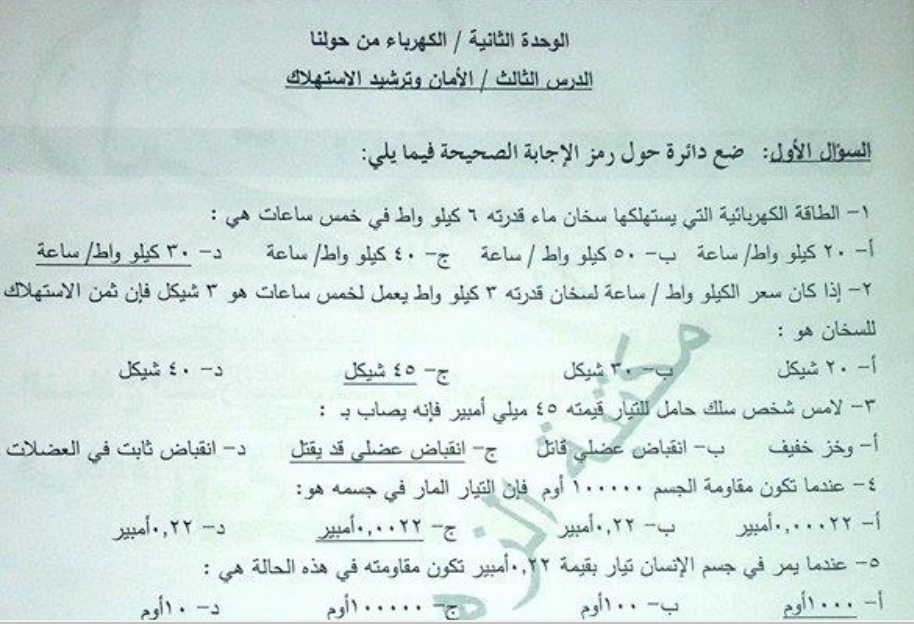 الوحدة الثانية / الكهرباء من حولنا
الدرس الثالث / الأمان وترشيد الاستهلاك
السؤال الأول: ضع دائرة حول رمز الإجابة الصحيحة فيما يلي:
١- الطاقة الكهربائية التي يستهلكها سخان ماء قدرته ٦ كيلو واط في خمس ساعات هي :
أ- ٢٠ كيلو واط/ ساعة ب- ٥٠ كيلو واط / ساعة ج- ٤٠ كيلو واط/ ساعة د- ٣٠ كيلو واط/ ساعة
٢- إذا كان سعر الكيلو واط / ساعة لسخان قدرته ٣ كيلو واط يعمل لخمس ساعات هو ٣ شيكل فإن ثمن الاستهلاك
للسخان هو :
أ- ٢٠ شيكل ب- ٣٠ شيكل ج- ٤٥ شيكل د- ٤٠ شيكل
٣- لامس شخص سلك حامل للتيار قيمته ٤٥ ميلي أمبير فإنه يصاب بـ :
أ- وخز خفيف ب- انقباض عضلي قاتل ج- انقباض عضلي قد يقتل د- انقباض ثابت في العضلات
٤- عندما تكون مقاومة الجسم ١٠٠٠٠٠ أوم فإن التيار المار في جسمه هو:
أ- ٠,٠٠٠٢٢أمبير ب- ٠,٢٢أمبير ج- ٠,٠٠٢٢أمبير د- ٠,٢٢أمبير
٥- عندما يمر في جسم الإنسان تيار بقيمة ٠,٢٢أمبير تكون مقاومته في هذه الحالة هي :
أ- ١٠٠٠أوم ب- ١٠٠أوم ج- ١٠٠٠٠٠أوم د- ١٠أوم
مكتبة